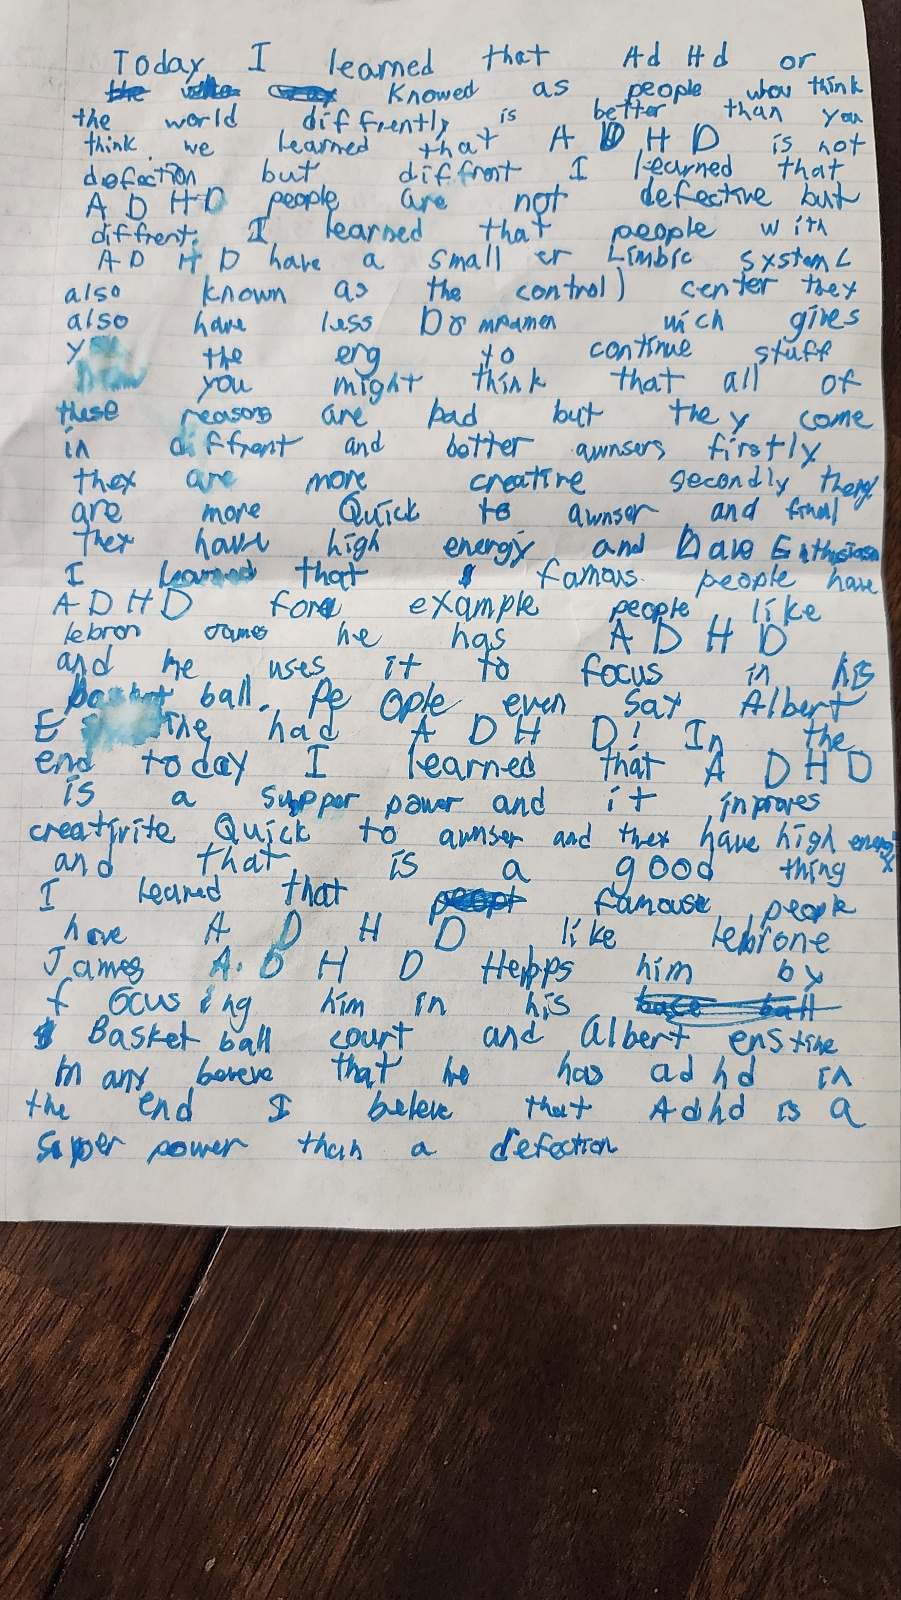 Today I learned that Ad Hd or
the knowed as people who think
the world diffrently is better than you
think. we learned that A D H D is not
defection but diffront I learned that
A D H D people are not defective but
diffrent. I learned that people with
A D H D have a small er Limbic system (
also known as the control) center they
also have less Dommamen wich gives
you the erg to continue stuff
you might think that all of
these reasons are bad but the y come
in diffront and botter awnsers firstly
they are more creative secondly they
are more Quick to awnser and final
they have high energy and have Enthusiasm
I learned that famous people have
A D H D fore example people like
lebron James he has A D H D
and he uses it to focus in his
basket ball. Pe ople even say Albert
E had A D H D! In the
end today I learned that A D H D
is a supper power and it inproves
creativite Quick to awnser and they have high energy
and that is a good thing
I leared that famouse people
have A D H D like lebrone
James A. D H D Helpps him by
f ocus ing him in his bace ball
Basket ball court and Albert enstine
m any beleve that he has ad hd in
the end I beleve that Adhd is a
super power than a defection